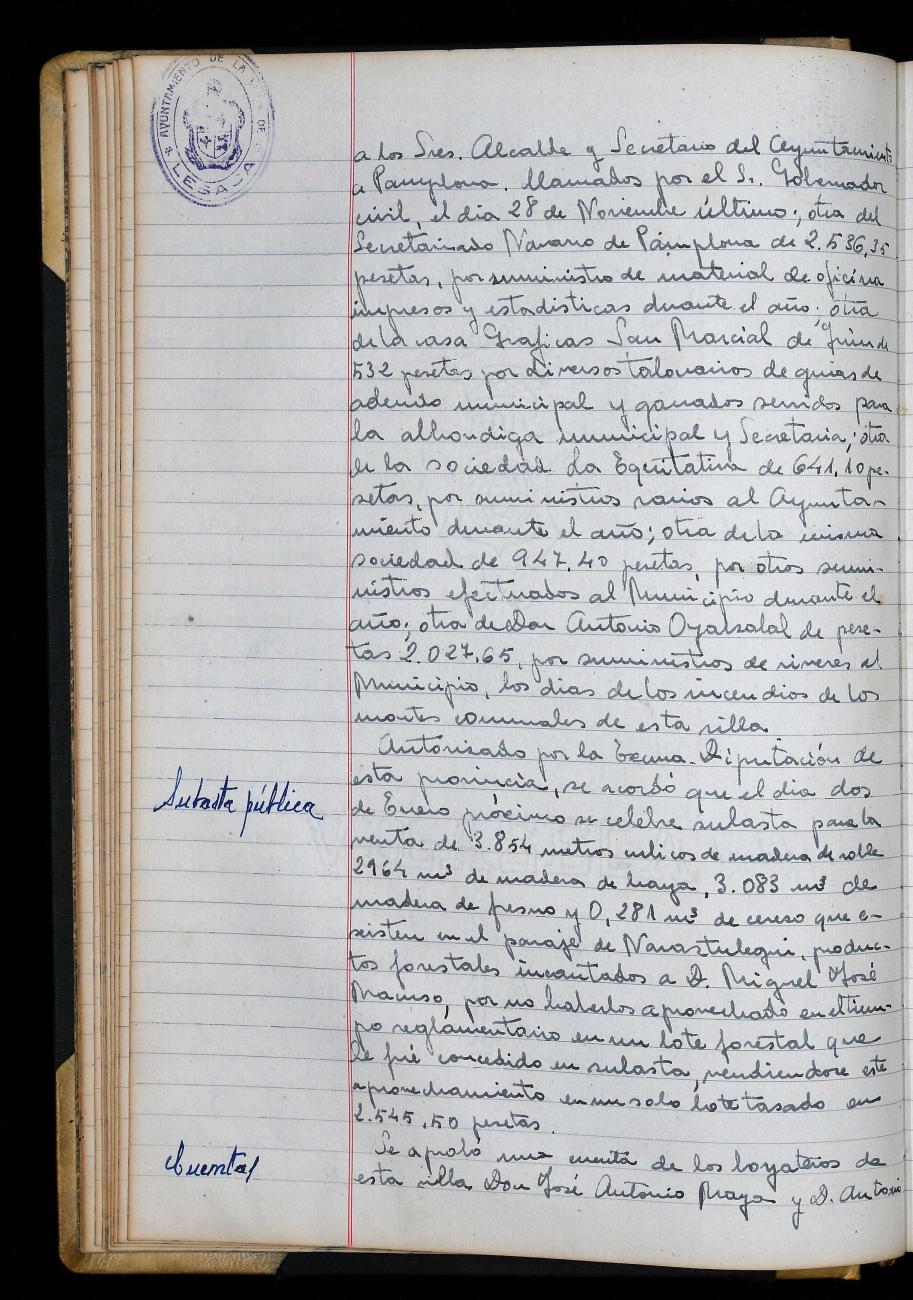 AYUNTAMIENTO DE LA DE
LESACA
a los Sres. Alcalde y Secretario del Ayuntamiento
a Pamplona, llamados por el Sr. Gobernador
civil, el dia 28 de Noviembre último; otra del
Secretariado Navarro de Pámplona de 2.536,35
pesetas, por suministro de material de oficina
impresos y estadisticas durante el año; otra
de la casa Graficas San Marcial de Irún de
532 pesetas por diversos talonarios de guias de
adeudo municipal y ganados servidos para
la alhondiga municipal y Secretaria; otra
de la sociedad La Equitativa de 641,10 pe-
setas, por suministros varios al Ayunta-
miento durante el año; otra de la misma
sociedad de 947,40 pesetas, por otros sumi-
nistros efectuados al Municipio durante el
año; otra de Don Antonio Oyarzabal de pese-
tas 2.027,65, por suministros de viveres al
Municipio, los dias de los incendios de los
montes comunales de esta villa.
Autorizado por la Excma. Diputación de
Subasta pública
esta provincia, se acordó que el dia dos
de Enero próximo se celebre subasta para la
venta de 3.854 metros cubicos de madera de roble
2964 m³ de madera de haya, 3.083 m³ de
madera de fresno y 0,281 m³ de cerezo que e-
xisten en el paraje de Navastulegui, produc-
tos forestales incautados a D. Miguel José
por no haberlos aprovechado en el tiem-
po reglamentario en un lote forestal que
le fué concedido en subasta, vendiendose este
aprovechamiento en un solo lote tasado en
2.545,50 pesetas.
Cuentas
Se aprobó una cuenta de los boyateros de
esta villa Don José Antonio Maya y D. Antonio